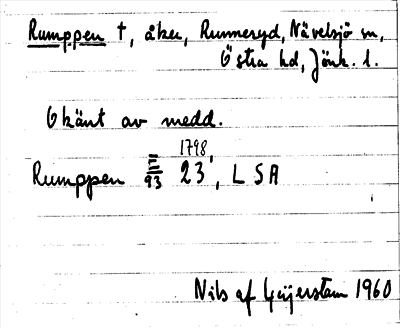 Rumppen †, åker, Runneryd, Nävelsjö sn,
Östra hd, Jönk. l.
Okänt av medd.
1798
Rumppen E/93 23, LSA
Nils af Geijerstam 1960